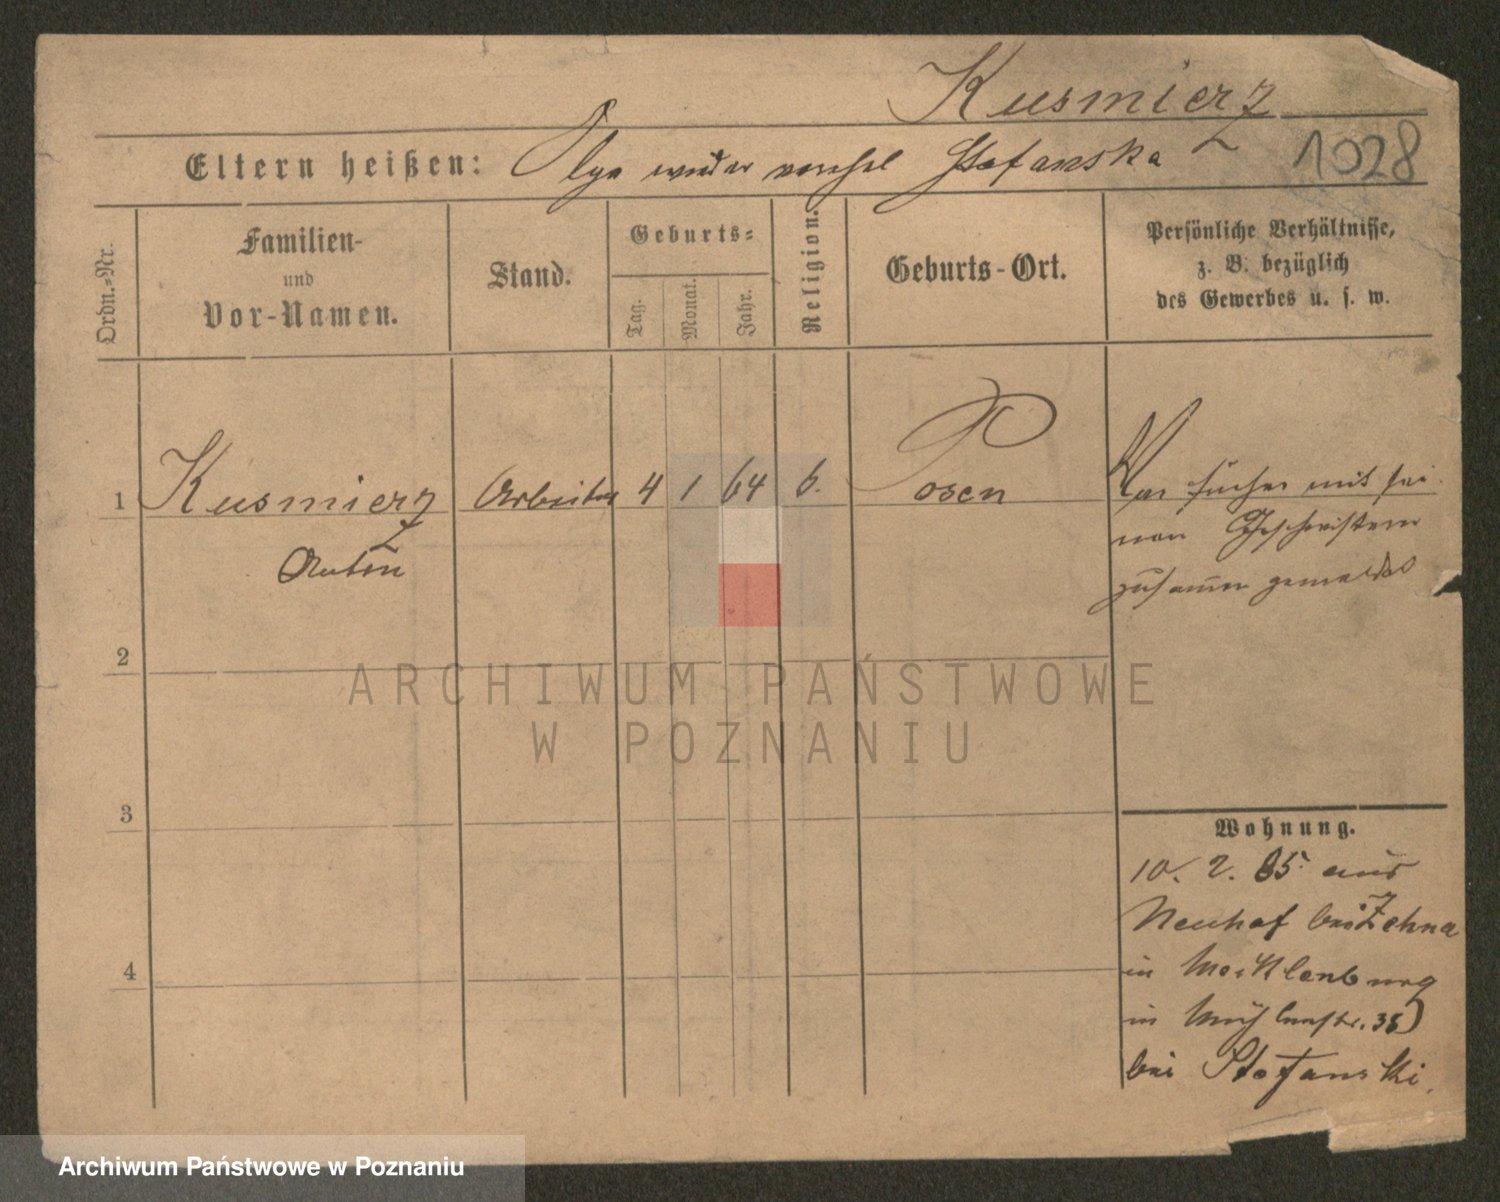 Kusmierz
Eltern heißen: Olga wieder verehel Stefanska 1028
Ordn.-Nr.
Familien-
und
Vor-Namen.
Stand.
Geburts-
Tag.
Monat.
Jahr.
Religion.
Geburts-Ort.
Persönliche Verhältnisse,
z. B. bezüglich
des Gewerbes u. s. w.
1 Kusmierz Arbeiter 4 1 64 Posen
Anton
War früher mit sei
nen Geschwistern
zusammen gemeldet
2
3
4
ARCHIWUM PAŃSTWOWE
W POZNANIU
Wohnung.
10. 2. 85 aus
Neuhof bei Zehna
in Mecklenburg
in Mühlenstr. 38
bei Stefanski.
Archiwum Państwowe w Poznaniu